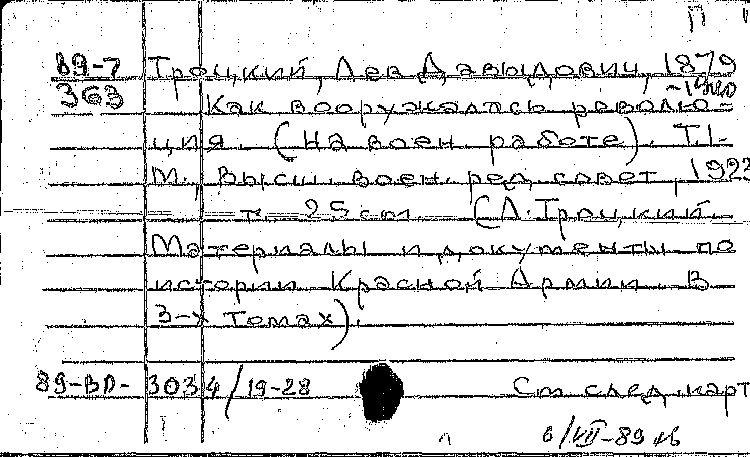 П
89-7 Троцкий, Лев Давыдович, 1879
363 -1940
Как вооружалась револю-
ция. (На воен. работе). Т.1-
М., Высш. воен. ред. совет, 1923
т. 25 см. (Л. Троцкий.
Материалы и документы по
истории Красной Армии. В
3-х томах).
89-ВО- 3034/19-28 См след. карт
6/VII-89